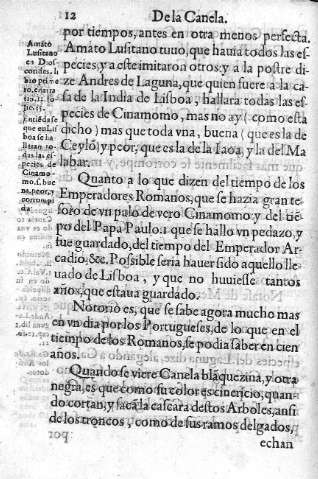 12
De la Canela.
por tiempos, antes en otra menos perfecta.
Amato Lusitano tuuo, que hauia todos las es-
pecies y a este imitaron otros: y a la postre di-
ze Andres de Laguna, que quien fuere a la ca-
sa de la India de Lisboa, hallara todas las es-
pecies de Cinamomo, mas no ay (como esta
dicho) mas que toda vna, buena (que es la de
Ceylõ) y peor, que es la de la Iaoa, y la del Ma
labar.
Quanto a lo que dizen del tiempo de los
Emperadores Romanos, que se hazia gran te-
soro de vn palo de vero Cinamomo y del tiẽ-
po del Papa Paulo. 1 que se hallo vn pedazo, y
fue guardado, del tiempo del Emperador Ar-
cadio, &c. Possible seria hauer sido aquello lle-
uado de Lisboa, y que no huuiesse tantos
años, que estaua guardado.
Notorio es, que se sabe agora mucho mas
en vn dia por los Portugueses, de lo que en el
tiempo de los Romanos, se podia saber en cien
años.
Quando se viere Canela blãquezina, y otra
negra, es que como su color es cinericio, quan-
do cortan, y sacã la cascara destos Arboles, ansi
de los troncos, como de sus ramos delgados,
echan
Amato
Lusitano
en Dios